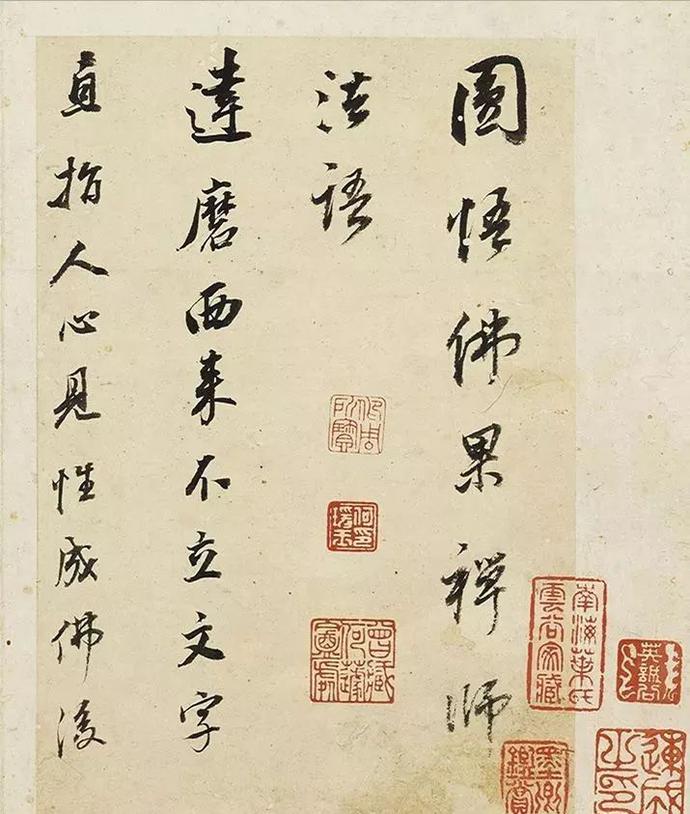 圓悟佛果禪師
法語
達磨西来不立文字
直指人心見性成佛後
南海葉氏
雲谷家藏